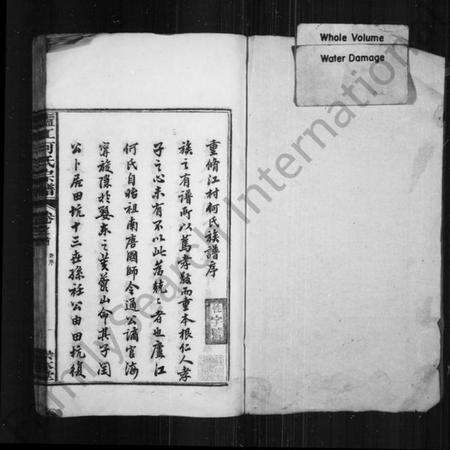 Whole Volume
Water Damage
重脩江村何氏族譜序
族之有譜所以篤孝敬而重本根仁人孝
子之心未有不以此為兢兢者也廬江
何氏自始祖南唐國師令通公謫官海
寧旋隱於婺東之黃
山命其子
公卜居田坑十三世孫
公由田坑復
廬江何氏宗譜
FamilySearch International